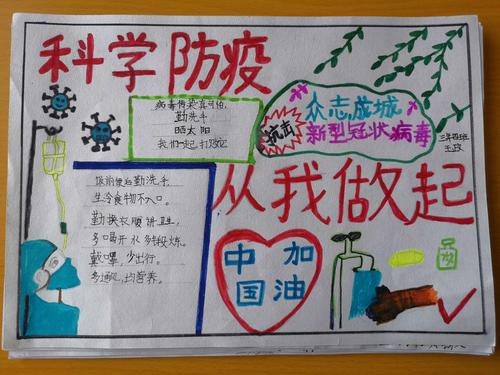 科学防疫
病毒传染真可怕,
勤洗手
晒太阳
我们一起打败它
抗击
众志成城
新型冠状病毒
三年四班
王政
从我做起
饭前便后勤洗手
生冷食物不入口。
勤换衣服讲卫生,
多喝开水多锻炼。
戴口罩,少出行。
多通风,均营养。
中国
加油